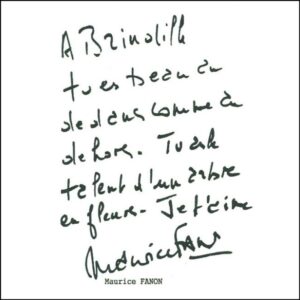 A Brindille
tu es beau au
dedans comme au
dehors. Tu as le
talent d'un arbre
en fleurs. Je t'aime
Maurice FANON
Maurice FANON